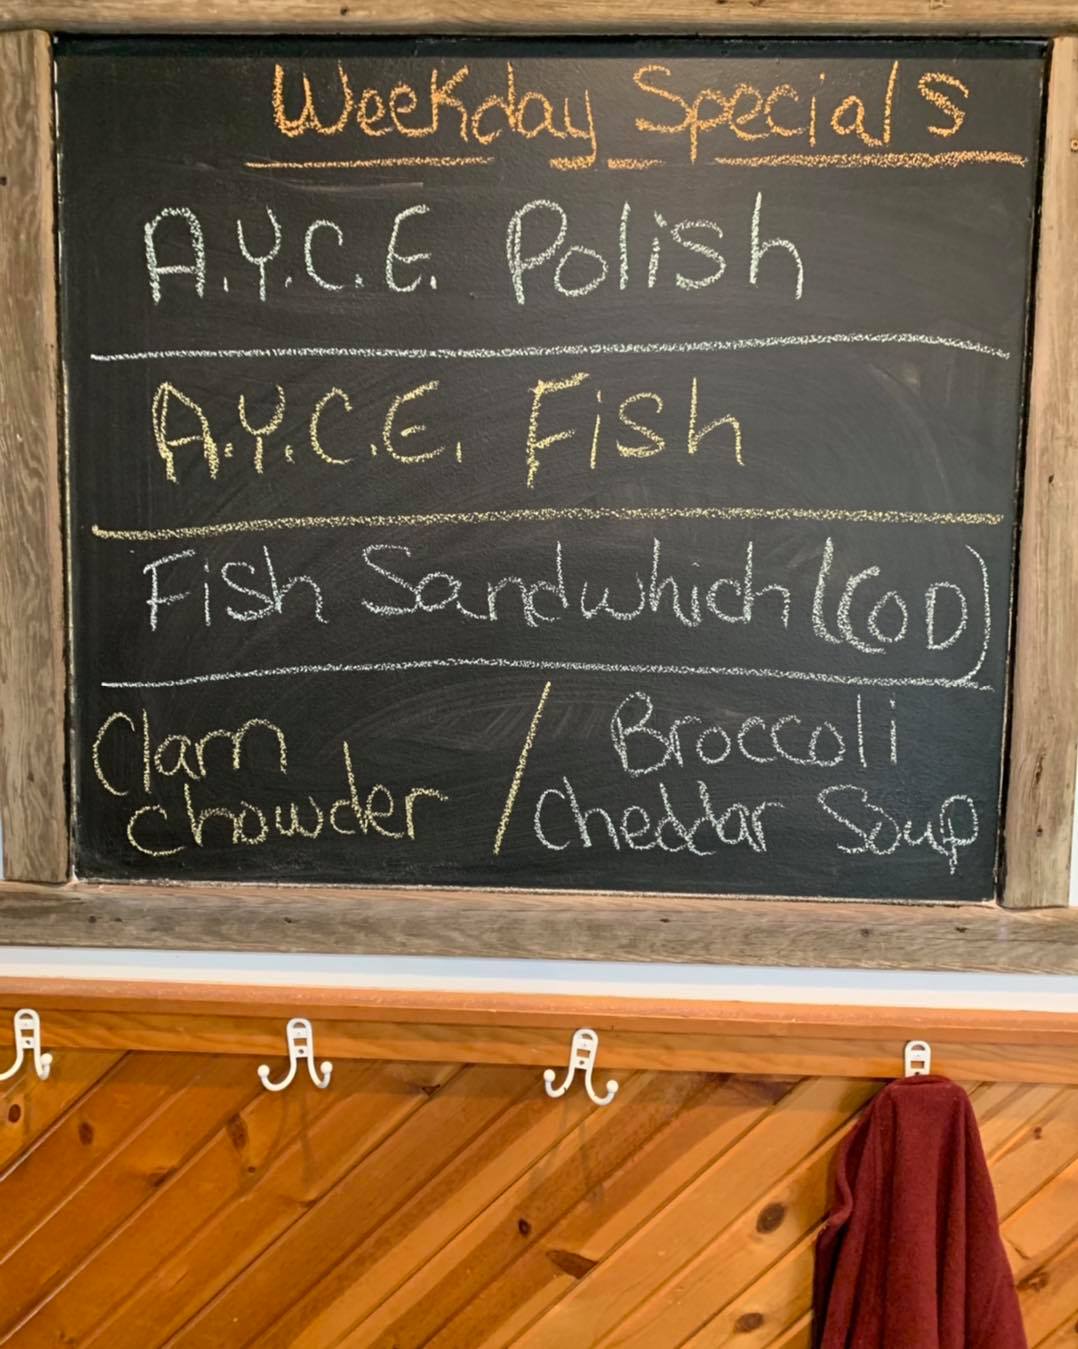 Weekday Specials
A.Y.C.E. Polish
A.Y.C.E. Fish
Fish Sandwhich (COD)
Clam chowder / Broccoli Cheddar Soup